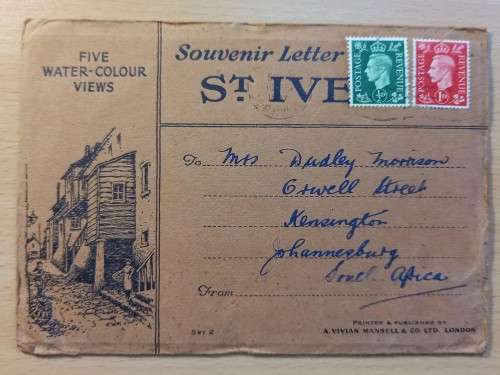 FIVE
WATER-COLOUR
VIEWS
Souvenir Letter
ST. IVE
POSTAGE REVENUE
½D
POSTAGE REVENUE
1D
To Mrs Dudley Morrison
Orwell Street
Kensington
Johannesburg
South Africa
From
SET 2
PRINTED & PUBLISHED BY
A. VIVIAN MANSELL & CO LTD. LONDON